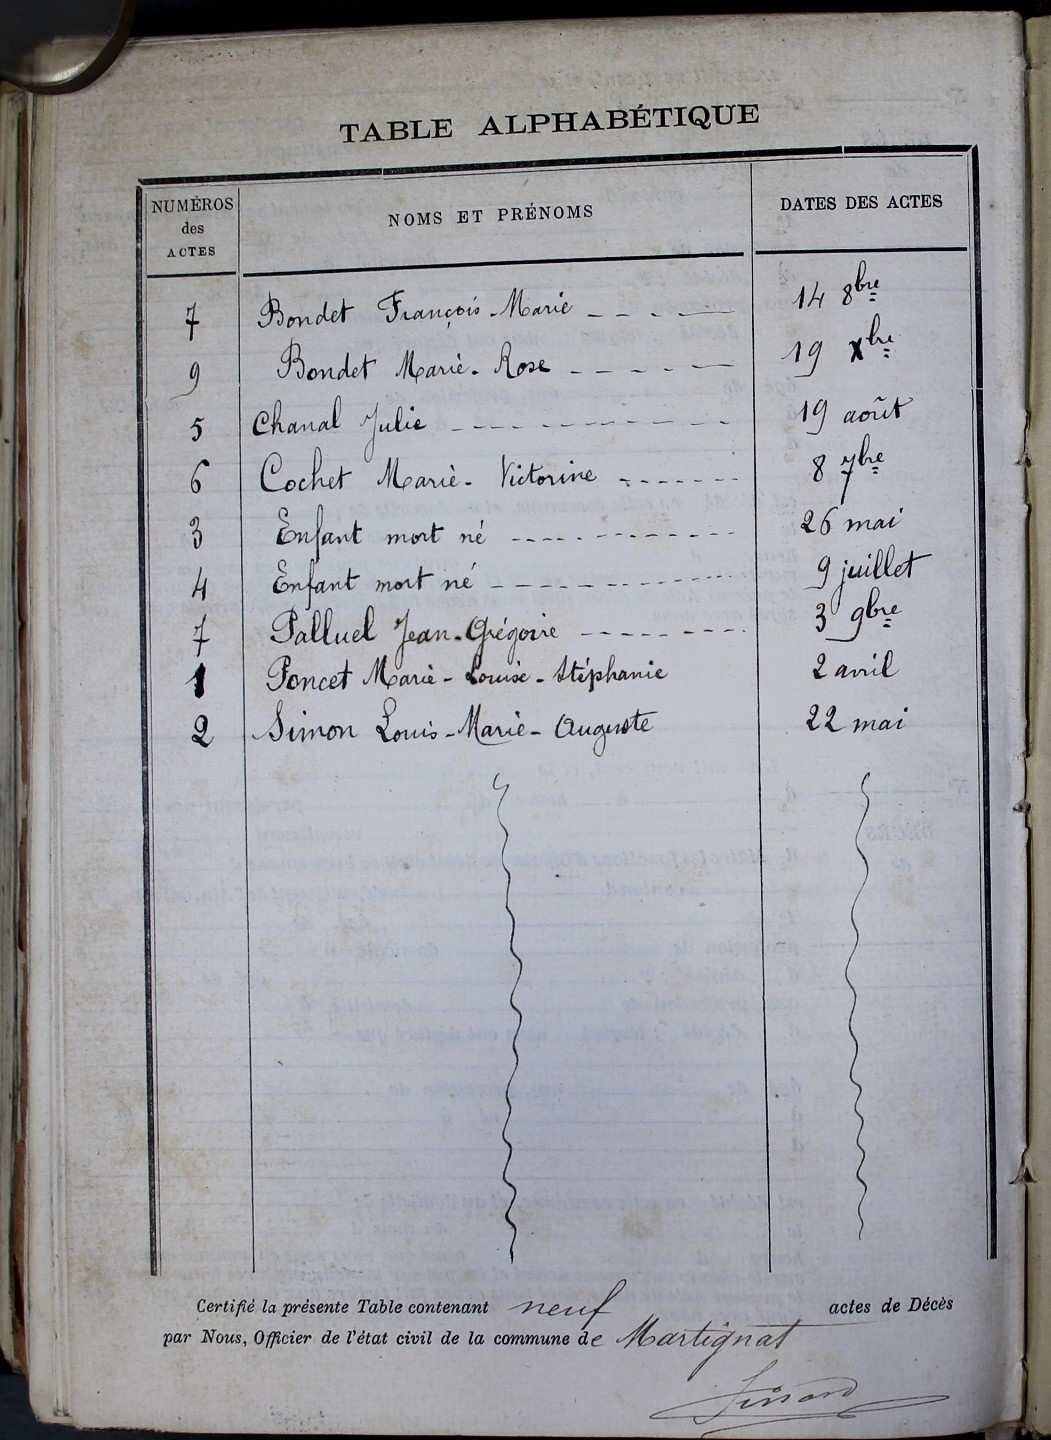 TABLE ALPHABÉTIQUE
NUMÉROS des ACTES
NOMS ET PRÉNOMS
DATES DES ACTES
7 Bondet François-Marie 14 8bre
9 Bondet Marie-Rose 19 Xbre
5 Chanal Julie 19 août
6 Cochet Marie-Victorine 8 7bre
3 Enfant mort né 26 mai
4 Enfant mort né 9 juillet
7 Palluel Jean-Grégoire 3 9bre
1 Poncet Marie-Louise-Stéphanie 2 avril
2 Simon Louis-Marie-Auguste 22 mai
Certifié la présente Table contenant neuf actes de Décès
par Nous, Officier de l'état civil de la commune de Martignat